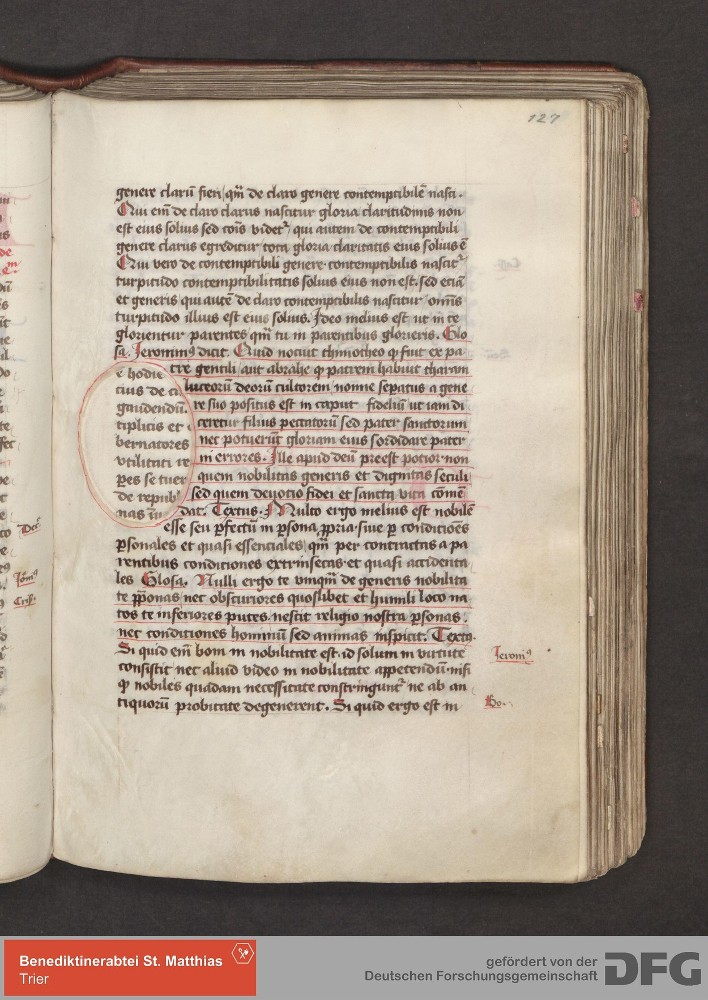 127
genere clarū fieri qm̄ de claro genere contemptibilē nasci.
Qui em̄ de claro clarus nascitur gloria claritudinis non
est eius solius sed cōis videtr qui autem de contemptibili
genere clarus egreditur tota gloria claritatis eius solius ē
Qui vero de contemptibili genere contemptibilis nascitr
turpitudo contemptibilitatis solius eius non est. sed eciā
et generis qui autē de claro contemptibilis nascitur om̄is
turpitudo illius est eius solius. Ideo melius est ut in te
glorientur parentes qm̄ tu in parentibus glorieris. Glo
sa. Ieronimꝰ dicit. Quid nocuit thimotheo ꝙ fuit ex pa
tre gentili aut abrahe ꝙ patrem habuit tharam
luteorū deorū cultorem nonne sepatus a gene
re suo positus est in caput fidelium ut iam di
ceretur filius peccatorū sed pater sanctorum
nec potuerūt gloriam eius sordidare pater
ni errores. Ille apud deū preest potior non
quem nobilitas generis et dignitas seculi
sed quem deuotio fidei et sancta vita cōmē
dat. Textus. Multo ergo melius est nobilē
esse seu ꝑfectū in ꝑsona ꝓpria siue ꝑ conditioēs
ꝑsonales et quasi essenciales qm̄ per contractas a pa
rentibus conditiones extrinsecas et quasi accidenta
les Glosa. Nulli ergo te vnqm̄ de generis nobilita
te p̄ponas nec obscuriores quoslibet et humili loco na
tos te inferiores putes. nescit religio nostra ꝑsonas.
nec conditiones hominū sed animas inspicit. Textꝰ.
Si quid em̄ bom in nobilitate est. id solum in virtute
consistit nec aliud video in nobilitate appetendū nisi
ꝙ nobiles quadam necessitate constringuntr ne ab an
tiquorū probitate degenerent. Si quid ergo est in
e hodie
cius de ci
gaudendū.
tiplicis et
bernatores
vtilitati re
ꝑes se tuer
de republ
nas
Ieronꝰ
Bo.
Benediktinerabtei St. Matthias
Trier
gefördert von der
Deutschen Forschungsgemeinschaft
DFG